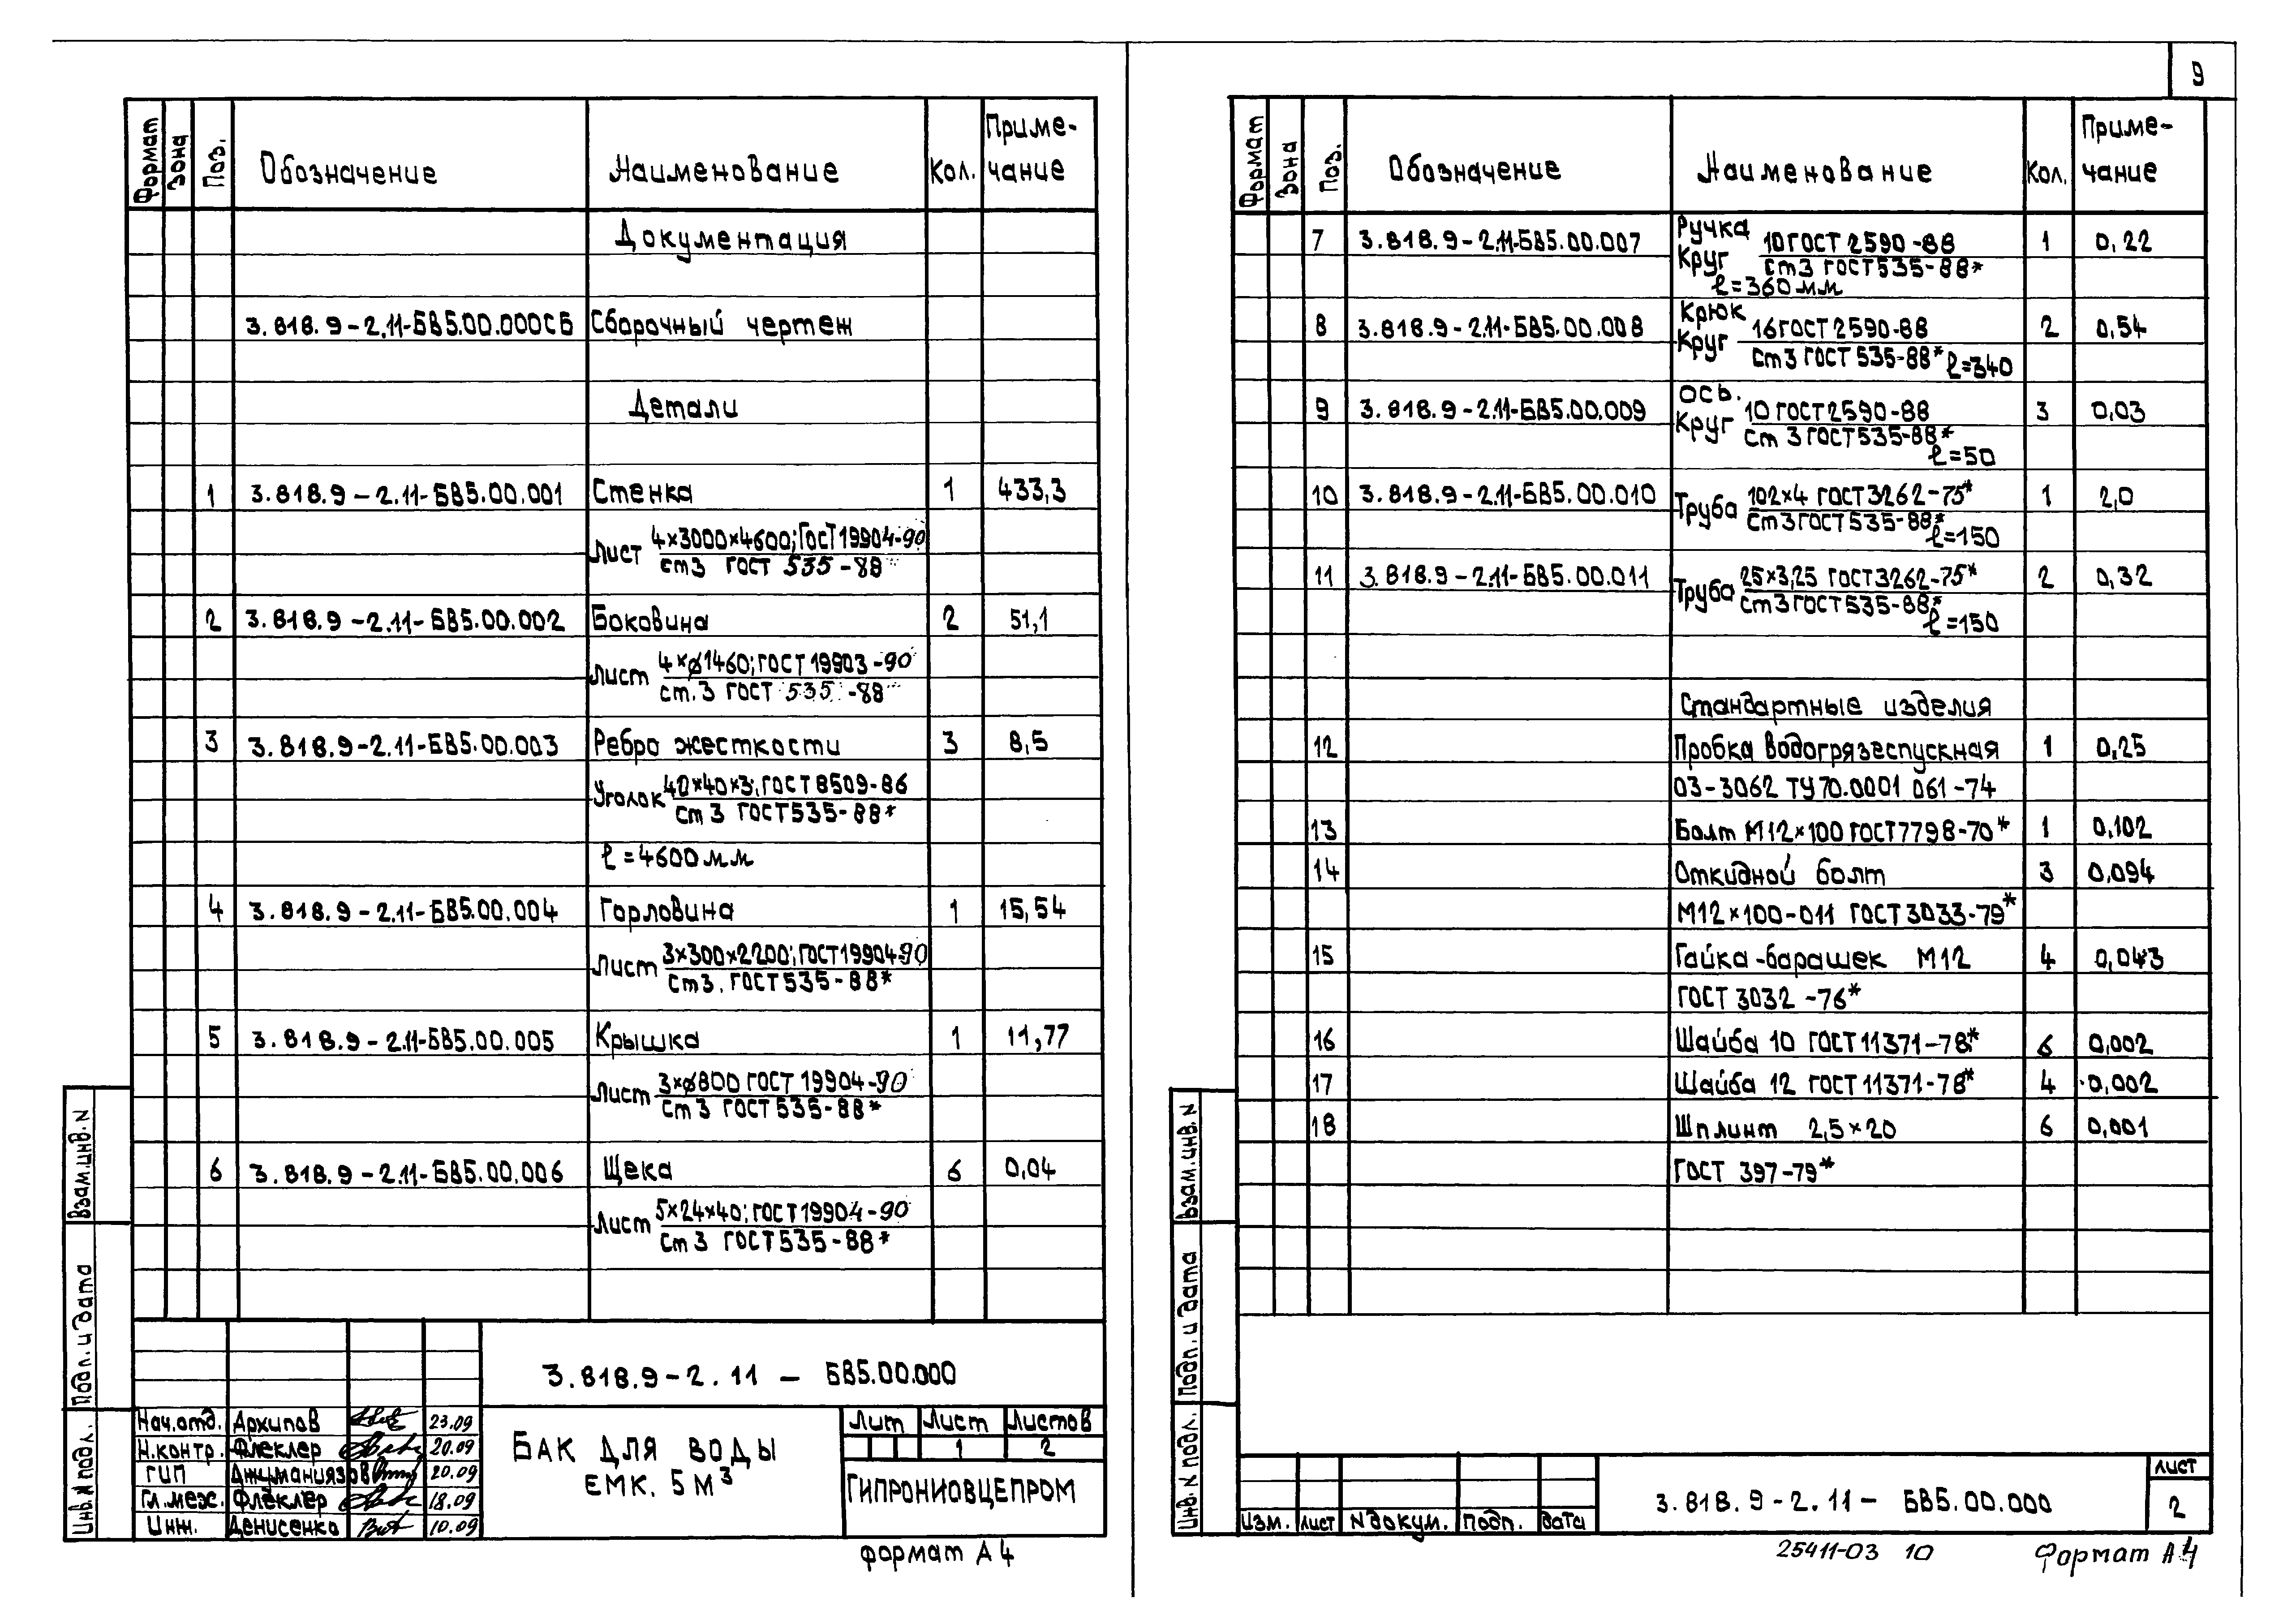 Формат Зона Поз. Обозначение Наименование Кол. Приме-
чание
Документация
3.818.9-2.11-БВ5.00.000СБ Сборочный чертеж
Детали
1 3.818.9-2.11-БВ5.00.001 Стенка 1 433,3
Лист 4×3000×4600; ГОСТ 19904-90
ст3 ГОСТ 535-88*
2 3.818.9-2.11-БВ5.00.002 Боковина 2 51,1
Лист 4×ø1460; ГОСТ 19903-90
ст.3 ГОСТ 535-88*
3 3.818.9-2.11-БВ5.00.003 Ребро жесткости 3 8,5
Уголок 40×40×3; ГОСТ 8509-86
ст 3 ГОСТ 535-88*
ℓ=4600 мм
4 3.818.9-2.11-БВ5.00.004 Горловина 1 15,54
Лист 3×300×2200; ГОСТ 19904-90
Ст3. ГОСТ 535-88*
5 3.818.9-2.11-БВ5.00.005 Крышка 1 11,77
Лист 3×ø800 ГОСТ 19904-90
Ст 3 ГОСТ 535-88*
6 3.818.9-2.11-БВ5.00.006 Щека 6 0,04
Лист 5×24×40; ГОСТ 19904-90
Ст 3 ГОСТ 535-88*
Взам.инв.N
Подп. и дата
Инв.N подл.
3.818.9-2.11 - БВ5.00.000
Нач.отд. Архипов 23.09
Н.контр. Флеклер 20.09
ГИП Джуманиязов 20.09
Гл.мех. Флеклер 18.09
Инж. Денисенко 10.09
БАК ДЛЯ ВОДЫ
ЕМК. 5 М³
Лит Лист Листов
1 2
ГИПРОНИОВЦЕПРОМ
Формат А4
9
Формат Зона Поз. Обозначение Наименование Кол. Приме-
чание
7 3.818.9-2.11-БВ5.00.007 Ручка 1 0,22
Круг 10 ГОСТ 2590-88
ст3 ГОСТ 535-88*
ℓ=360 мм
8 3.818.9-2.11-БВ5.00.008 Крюк 2 0,54
Круг 16 ГОСТ 2590-88
Ст3 ГОСТ 535-88* ℓ=340
9 3.818.9-2.11-БВ5.00.009 Ось. 3 0,03
Круг 10 ГОСТ 2590-88
Ст 3 ГОСТ 535-88*
ℓ=50
10 3.818.9-2.11-БВ5.00.010 Труба 102×4 ГОСТ 3262-75* 1 2,0
Ст3 ГОСТ 535-88*
ℓ=150
11 3.818.9-2.11-БВ5.00.011 Труба 25×3,25 ГОСТ 3262-75* 2 0,32
Ст3 ГОСТ 535-88*
ℓ=150
Стандартные изделия
12 Пробка водогрязеспускная 1 0,25
03-3062 ТУ70.0001 061-74
13 Болт М12×100 ГОСТ 7798-70* 1 0,102
14 Откидной болт 3 0,094
М12×100-011 ГОСТ 3033-79*
15 Гайка-барашек М12 4 0,043
ГОСТ 3032-76*
16 Шайба 10 ГОСТ 11371-78* 6 0,002
17 Шайба 12 ГОСТ 11371-78* 4 0,002
18 Шплинт 2,5×20 6 0,001
ГОСТ 397-79*
Взам.инв.N
Подп. и дата
Инв.N подл.
Изм. Лист N докум. Подп. Дата
3.818.9-2.11- БВ5.00.000
Лист
2
25411-03 10 Формат А4